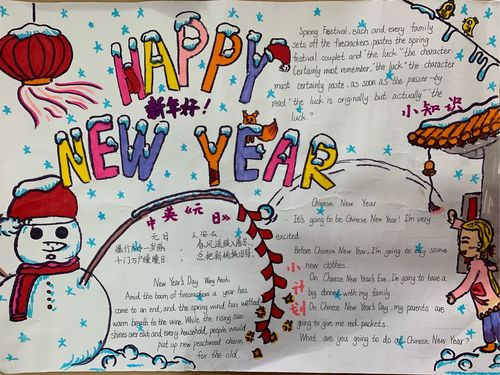 HAPPY
NEW YEAR
新年好!
Spring Festival, each and every family
sets off the firecrackers, pastes the spring
festival couplet and "the luck" the character.
Certainly must remember, "the luck" the character
must certainly paste, as soon as the passer-by
read "the luck is originally but actually" "the
luck."
小知识
中英《元日》
元日 王安石
爆竹声中一岁除 春风送暖入屠苏
千门万户曈曈日 总把新桃换旧符
New Year's Day Wang Anshi
Amid the boom of firecrackers a year has
come to an end, and the spring wind has wafted
warm breath to the wine. While the rising sun
shines over each and every household, people would
put up new peachwood charm
for the old.
小计划
Chinese New Year
It's going to be Chinese New Year! I'm very
excited.
Before Chinese New Year, I'm going to buy some
new clothes.
On Chinese New Year's Eve, I'm going to have a
big dinner with my family.
On Chinese New Year's Day, my parents are
going to give me red packets.
What are you going to do at Chinese New Year?